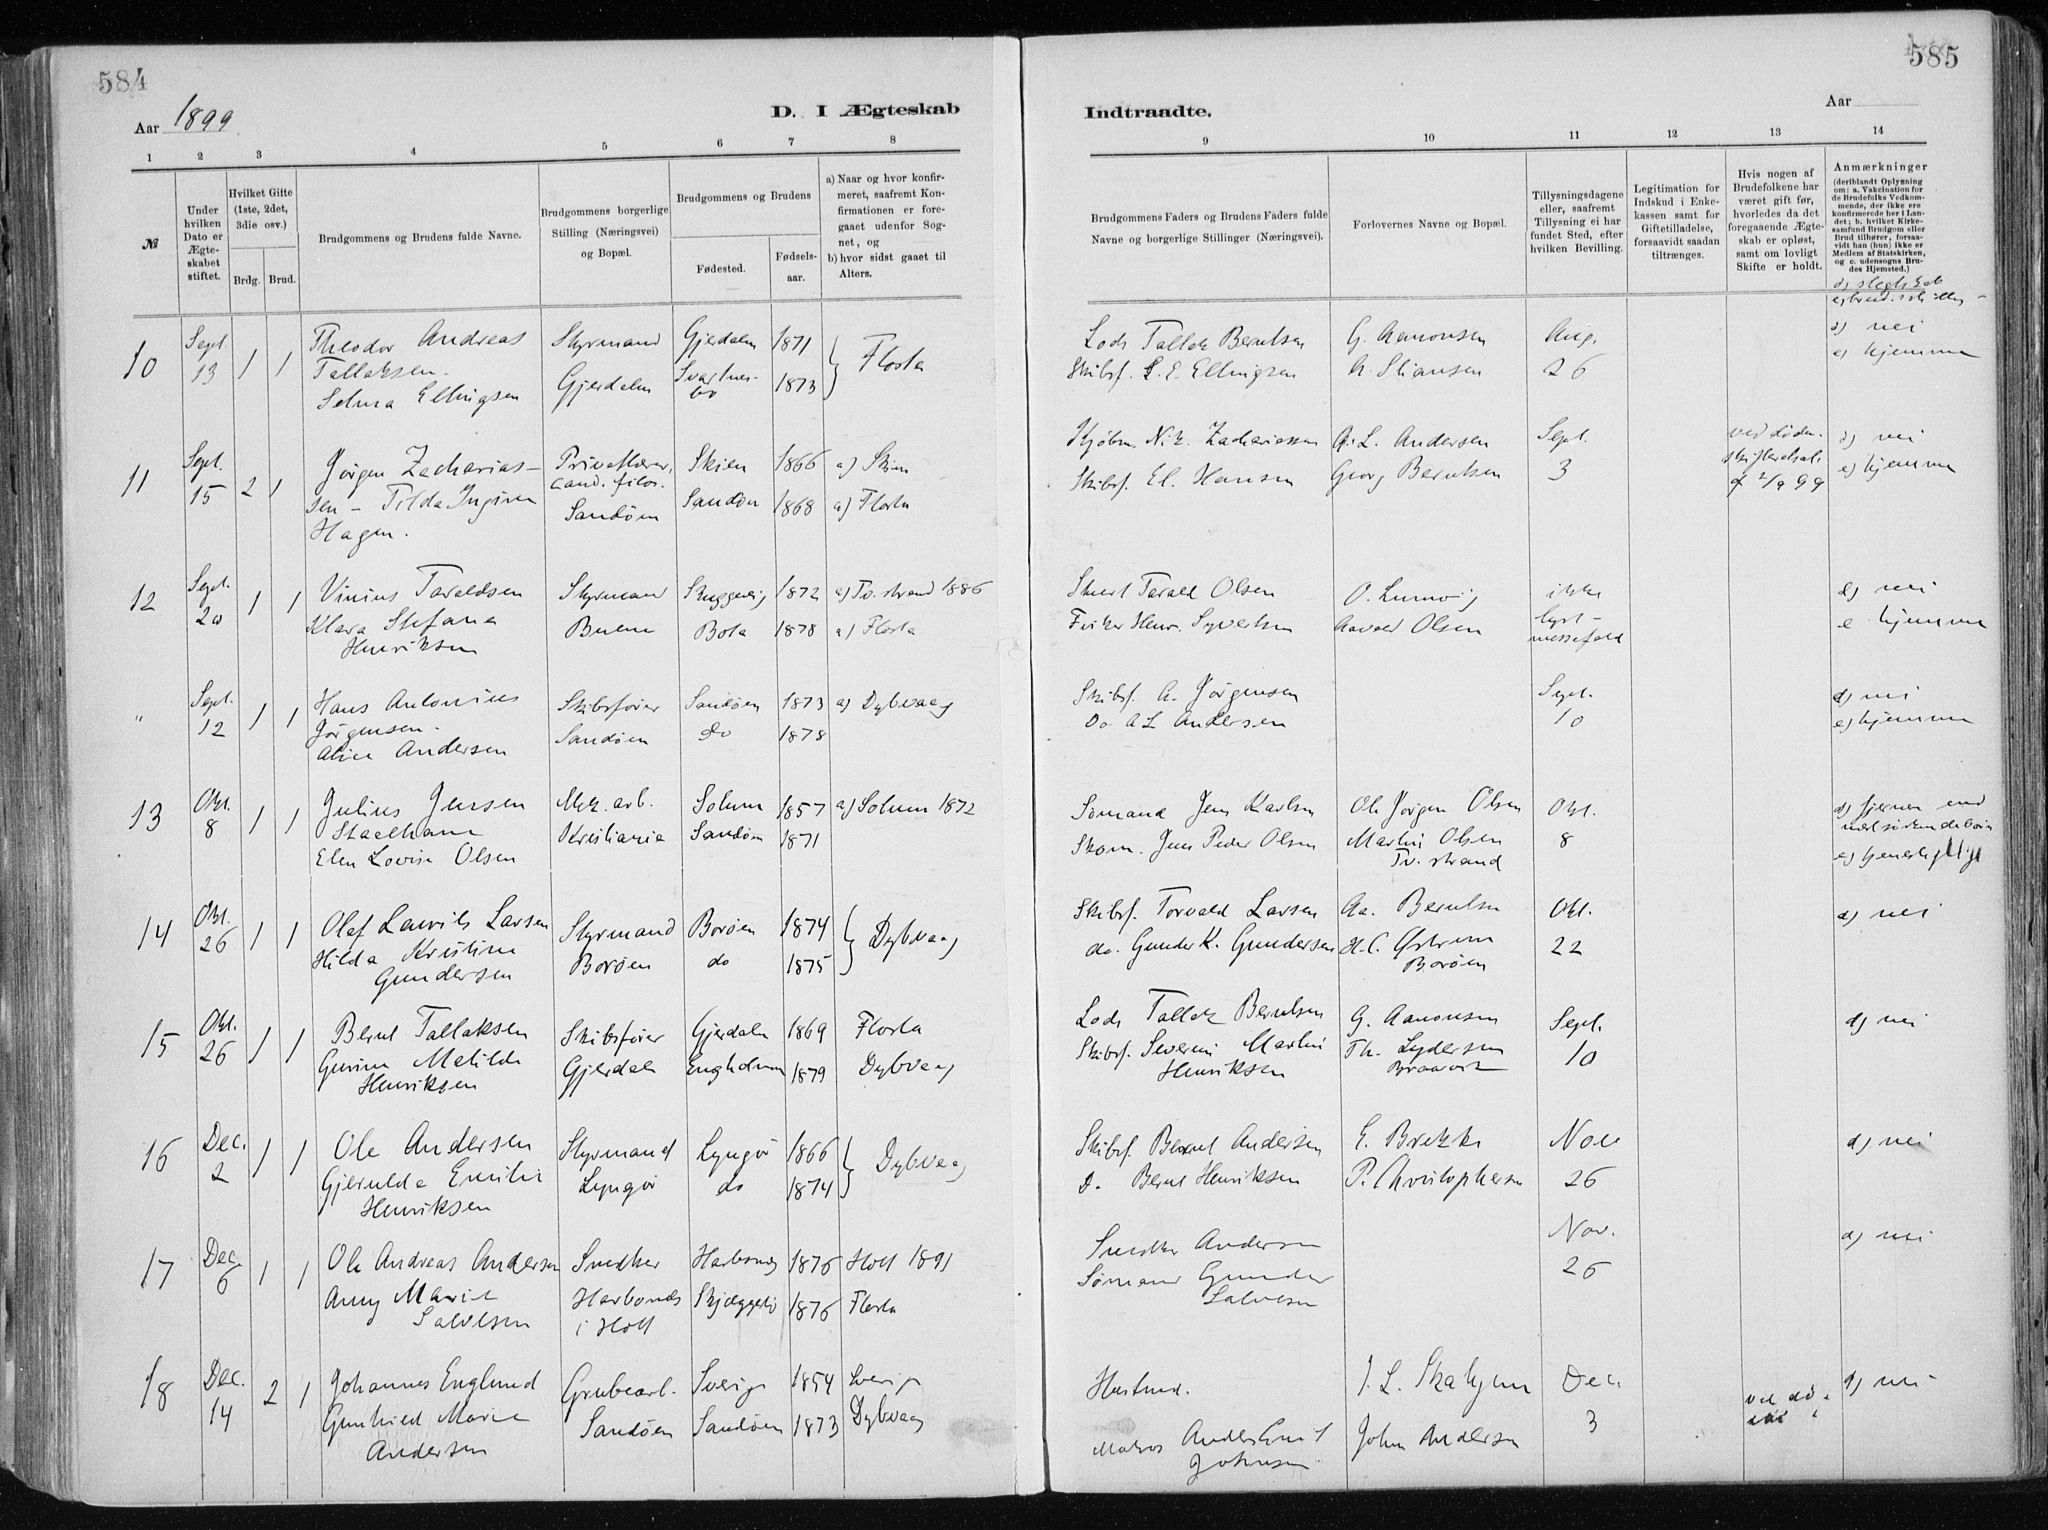 584
Aar 1899
D. I Ægteskab
1 2 3 4 5 6 7 8
№
Under hvilken Dato er Ægteskabet stiftet.
Hvilket Gifte (1ste, 2det, 3die osv.)
Brdg. Brud.
Brudgommens og Brudens fulde Navne.
Brudgommens borgerlige Stilling (Næringsvei) og Bopæl.
Brudgommens og Brudens
Fødested.
Fødselsaar.
a) Naar og hvor konfirmeret, saafremt Konfirmationen er foregaaet udenfor Sognet, og
b) hvor sidst gaaet til Alters.
10 Sept. 1 1 Theodor Andreas Styrmand Gjerdalen 1871 } Flosta
13 Tallaksen. Gjerdalen 1873
Selma Ellingsen
11 Sept. 2 1 Jørgen Zacharias- Privatlærer, Skien 1866 a) Skien
15 sen - Tilda Ingine cand. filos. Sandøen 1868 a) Flosta
Hagen. Sandøen
12 Sept. 1 1 Vinius Taraldsen Styrmand 1872 a) Tv.strand 1886
20 Klara Stefana Buene Bota 1878 a) Flosta
Henriksen
" Sept. 1 1 Hans Antonius Skibsfører Sandøen 1873 a) Dybvaag
12 Jørgensen. Sandøen do 1878
Alice Andersen
13 Okt. 1 1 Julius Jensen Mek. arb. Solum 1857 a) Solum 1872
8 Kristiania Sandøen 1871
Elen Lovise Olsen
14 Okt. 1 1 Olaf Laurits Larsen Styrmand Borøen 1874 } Dybvaag
26 Hilda Kristine Borøen do 1875
Gundersen
15 Okt. 1 1 Bernt Tallaksen Skibsfører Gjerdalen 1869 Flosta
26 Gurine Matilde Gjerdalen Engholmen 1879 Dybvaag
Henriksen
16 Dec. 1 1 Ole Andersen Styrmand Lyngør 1866 } Dybvaag
2 Emilie Lyngør do 1874
Henriksen
17 Dec. 1 1 Ole Andreas Andersen Snedker 1876 Holt 1891
6 Anny Marie 1876 Flosta
Salvesen i Holt
18 Dec. 2 1 Johannes Englund Grubearb. Sverige 1854 Sverige
14 Gunhild Marie Sandøen Sandøen 1873 Dybvaag
Andersen
585
Indtraadte.
Aar
9 10 11 12 13 14
Brudgommens Faders og Brudens Faders fulde Navne og borgerlige Stillinger (Næringsvei).
Forlovernes Navne og Bopæl.
Tillysningsdagene eller, saafremt Tillysning ei har fundet Sted, efter hvilken Bevilling.
Legitimation for Indskud i Enkekassen samt for Giftetilladelse, forsaavidt saadan tiltrænges.
Hvis nogen af Brudefolkene har været gift før, hvorledes da det foregaaende Ægteskab er opløst, samt om lovligt Skifte er holdt.
Anmærkninger
(deriblandt Oplysning om: a. Vakcination for de Brudefolks Vedkommende, der ikke ere konfirmerede her i Landet; b. hvilket Kirkesamfund Brudgom eller Brud tilhører, forsaavidt han (hun) ikke er Medlem af Statskirken, og c. udensogns Brudes Hjemsted.)
d) slegtskab
Lods Tallak Berntsen G. Aamonsen Aug. d) nei
Skibsf. L. E. Ellingsen A. Stiansen 26 e) hjemme
Kjøbm. Nik. Zachariassen A. L. Andersen Sept. ved døden d) nei
Skibsf. El. Hansen Georg Berntsen 3 2/9 99 e) hjemme
Tarald Olsen ikke d) nei
Fisker Henr. Syvertsen Aavald Olsen lyst- e hjemme
messefald
Skibsf. A. Jørgensen Sept. d) nei
Do A L Andersen 10 e) hjemme
Sømand Jens Karlsen Ole Jørgen Olsen Okt.
Skom. Jens Peder Olsen Martin Olsen 8
Tv. strand
Skibsf. Torvald Larsen Aa. Berntsen Okt. d) nei
do. Gunder K. Gundersen H. C. 22
Borøen
Lods Tallak Berntsen G. Aamonsen Sept. d) nei
Skibsf. Severin Martin Th. Lydersen 10
Henriksen
Skibsf. Bernt Andersen E. Brekke Nov d) nei
D. Bernt Henriksen P. Christophersen 26
Snedker Andersen Nov. d) nei
Sømand Gunder 26
Salvesen
Husmd. J. L. Dec. d) nei
Matros John Andersen 3
Johnsen